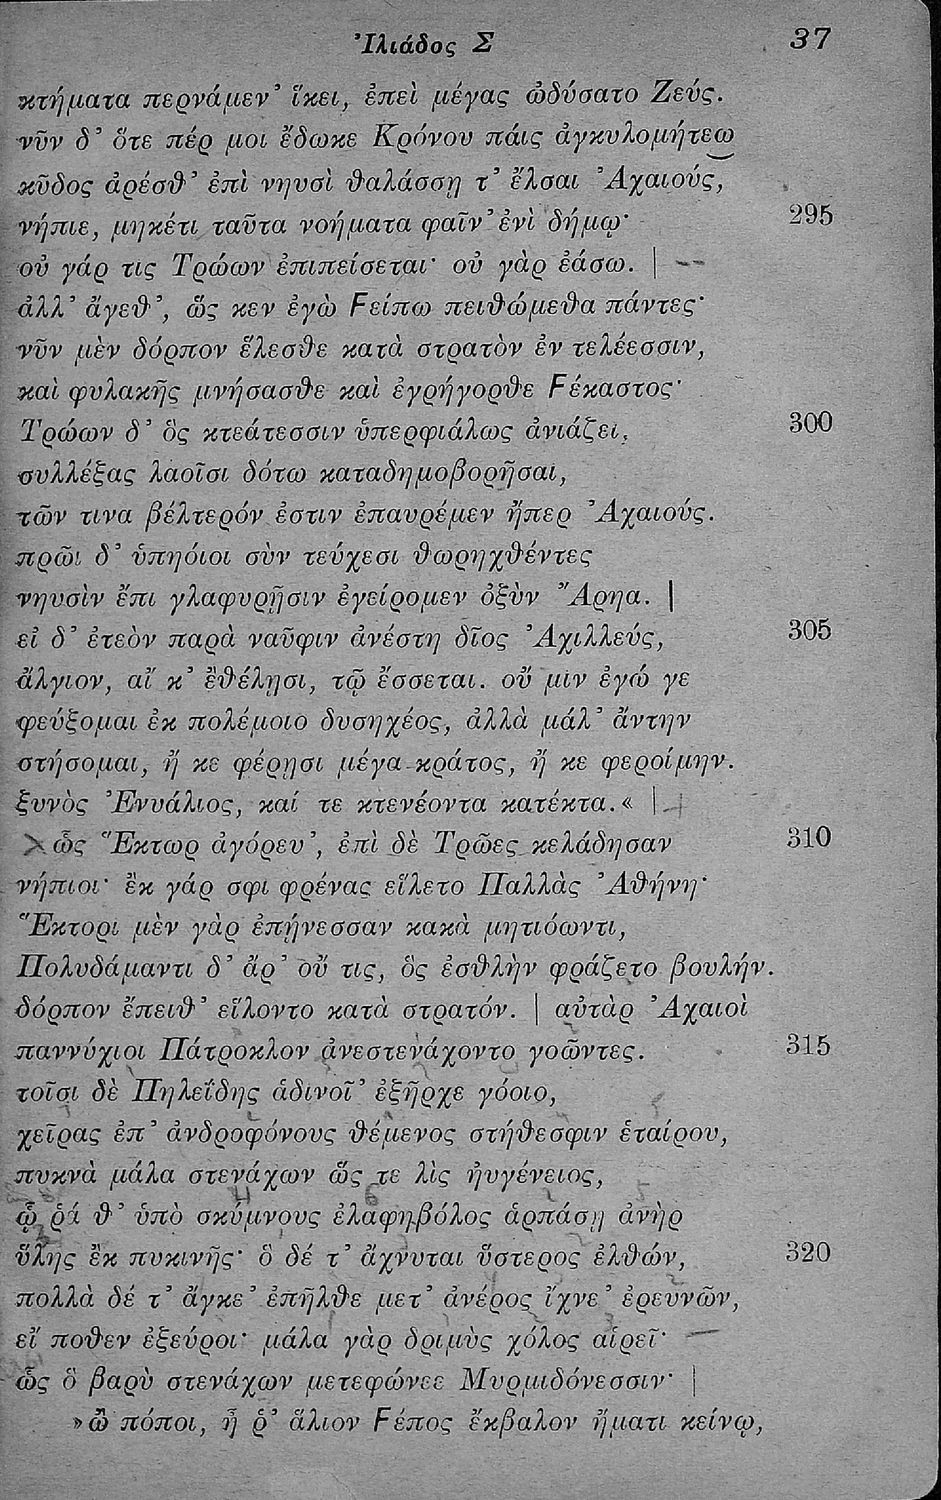 Ἰλιάδος Σ 37
κτήματα περνάμεν' ἵκει, ἐπεὶ μέγας ὠδύσατο Ζεύς.
νῦν δ' ὅτε πέρ μοι ἔδωκε Κρόνου πάις ἀγκυλομήτεω
κῦδος ἀρέσθ' ἐπὶ νηυσὶ θαλάσσῃ τ' ἔλσαι Ἀχαιούς,
νήπιε, μηκέτι ταῦτα νοήματα φαῖν' ἐνὶ δήμῳ· 295
οὐ γάρ τις Τρώων ἐπιπείσεται· οὐ γὰρ ἐάσω. |
ἀλλ' ἄγεθ', ὥς κεν ἐγὼ Ϝείπω πειθώμεθα πάντες·
νῦν μὲν δόρπον ἕλεσθε κατὰ στρατὸν ἐν τελέεσσιν,
καὶ φυλακῆς μνήσασθε καὶ ἐγρήγορθε Ϝέκαστος·
Τρώων δ' ὃς κτεάτεσσιν ὑπερφιάλως ἀνιάζει, 300
συλλέξας λαοῖσι δότω καταδημοβορῆσαι,
τῶν τινα βέλτερόν ἐστιν ἐπαυρέμεν ἤπερ Ἀχαιούς.
πρῶι δ' ὑπηόιοι σὺν τεύχεσι θωρηχθέντες
νηυσὶν ἔπι γλαφυρῇσιν ἐγείρομεν ὀξὺν Ἄρηα. |
εἰ δ' ἐτεὸν παρὰ ναῦφιν ἀνέστη δῖος Ἀχιλλεύς, 305
ἄλγιον, αἴ κ' ἐθέλῃσι, τῷ ἔσσεται. οὔ μιν ἐγώ γε
φεύξομαι ἐκ πολέμοιο δυσηχέος, ἀλλὰ μάλ' ἄντην
στήσομαι, ἤ κε φέρῃσι μέγα κράτος, ἤ κε φεροίμην.
ξυνὸς Ἐνυάλιος, καί τε κτενέοντα κατέκτα.« |
ὣς Ἕκτωρ ἀγόρευ', ἐπὶ δὲ Τρῶες κελάδησαν 310
νήπιοι· ἐκ γάρ σφι φρένας εἵλετο Παλλὰς Ἀθήνη·
Ἕκτορι μὲν γὰρ ἐπῄνεσσαν κακὰ μητιόωντι,
Πολυδάμαντι δ' ἄρ' οὔ τις, ὃς ἐσθλὴν φράζετο βουλήν.
δόρπον ἔπειθ' εἵλοντο κατὰ στρατόν. | αὐτὰρ Ἀχαιοὶ
παννύχιοι Πάτροκλον ἀνεστενάχοντο γοῶντες. 315
τοῖσι δὲ Πηλεΐδης ἁδινοῖ' ἐξῆρχε γόοιο,
χεῖρας ἐπ' ἀνδροφόνους θέμενος στήθεσφιν ἑταίρου,
πυκνὰ μάλα στενάχων ὥς τε λὶς ἠυγένειος,
ᾧ ῥά θ' ὑπὸ σκύμνους ἐλαφηβόλος ἁρπάσῃ ἀνὴρ
ὕλης ἐκ πυκινῆς· ὁ δέ τ' ἄχνυται ὕστερος ἐλθών, 320
πολλὰ δέ τ' ἄγκε' ἐπῆλθε μετ' ἀνέρος ἴχνε' ἐρευνῶν,
εἴ ποθεν ἐξεύροι· μάλα γὰρ δριμὺς χόλος αἱρεῖ·
ὣς ὃ βαρὺ στενάχων μετεφώνεε Μυρμιδόνεσσιν· |
»ὢ πόποι, ἦ ῥ' ἅλιον Ϝέπος ἔκβαλον ἤματι κείνῳ,